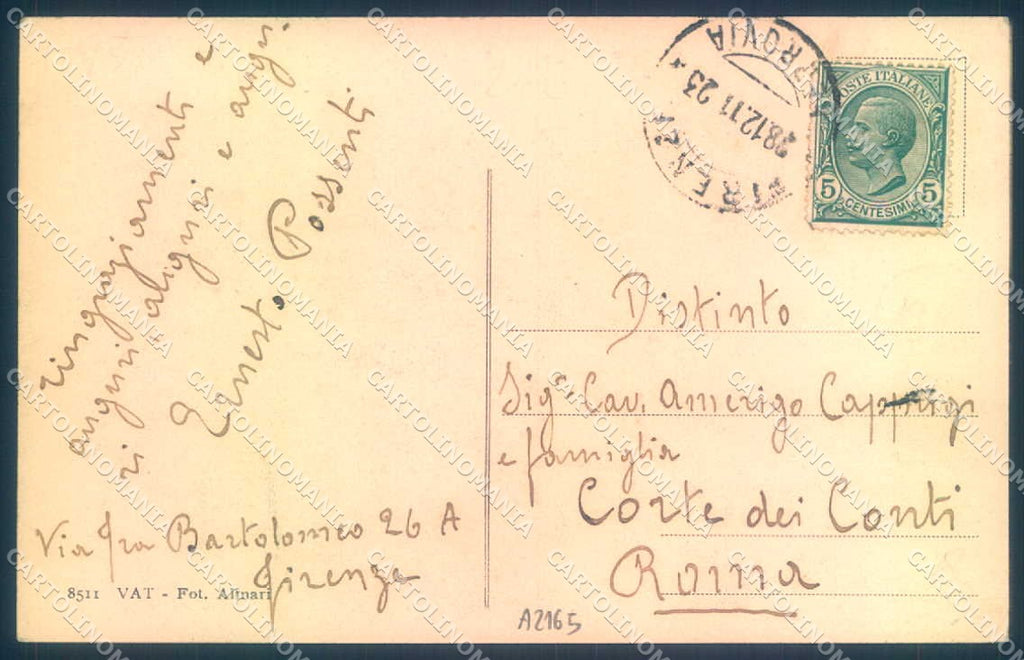 ringraziamenti e
auguri
ri e auguri.
Ernesto Possenti
Via Fra Bartolomeo 26 A
Firenze
8511 VAT - Fot. Alinari
FERROVIA
28.12.11 23
FIRENZE
POSTE ITALIANE
5 5
CENTESIMI
Distinto
Sig. Cav. Amerigo Cappugi
e famiglia
Corte dei Conti
Roma
A2165
CARTOLINOMANIA